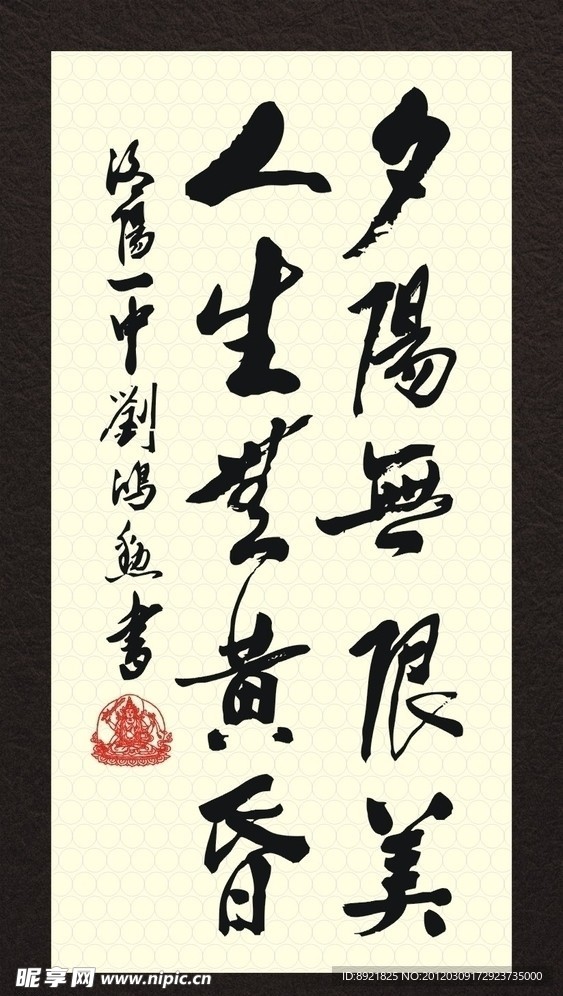 夕陽無限美
人生無黄昏
洛陽一中劉鴻勳書
昵享网 www.nipic.cn
ID:8921825 NO:20120309172923735000